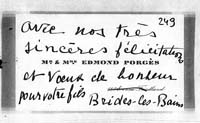 249
avec nos très
sincères félicitations
Mr & Mme EDMOND PORGÈS
et Vœux de bonheur
pour votre fils
Brides-les-Bains